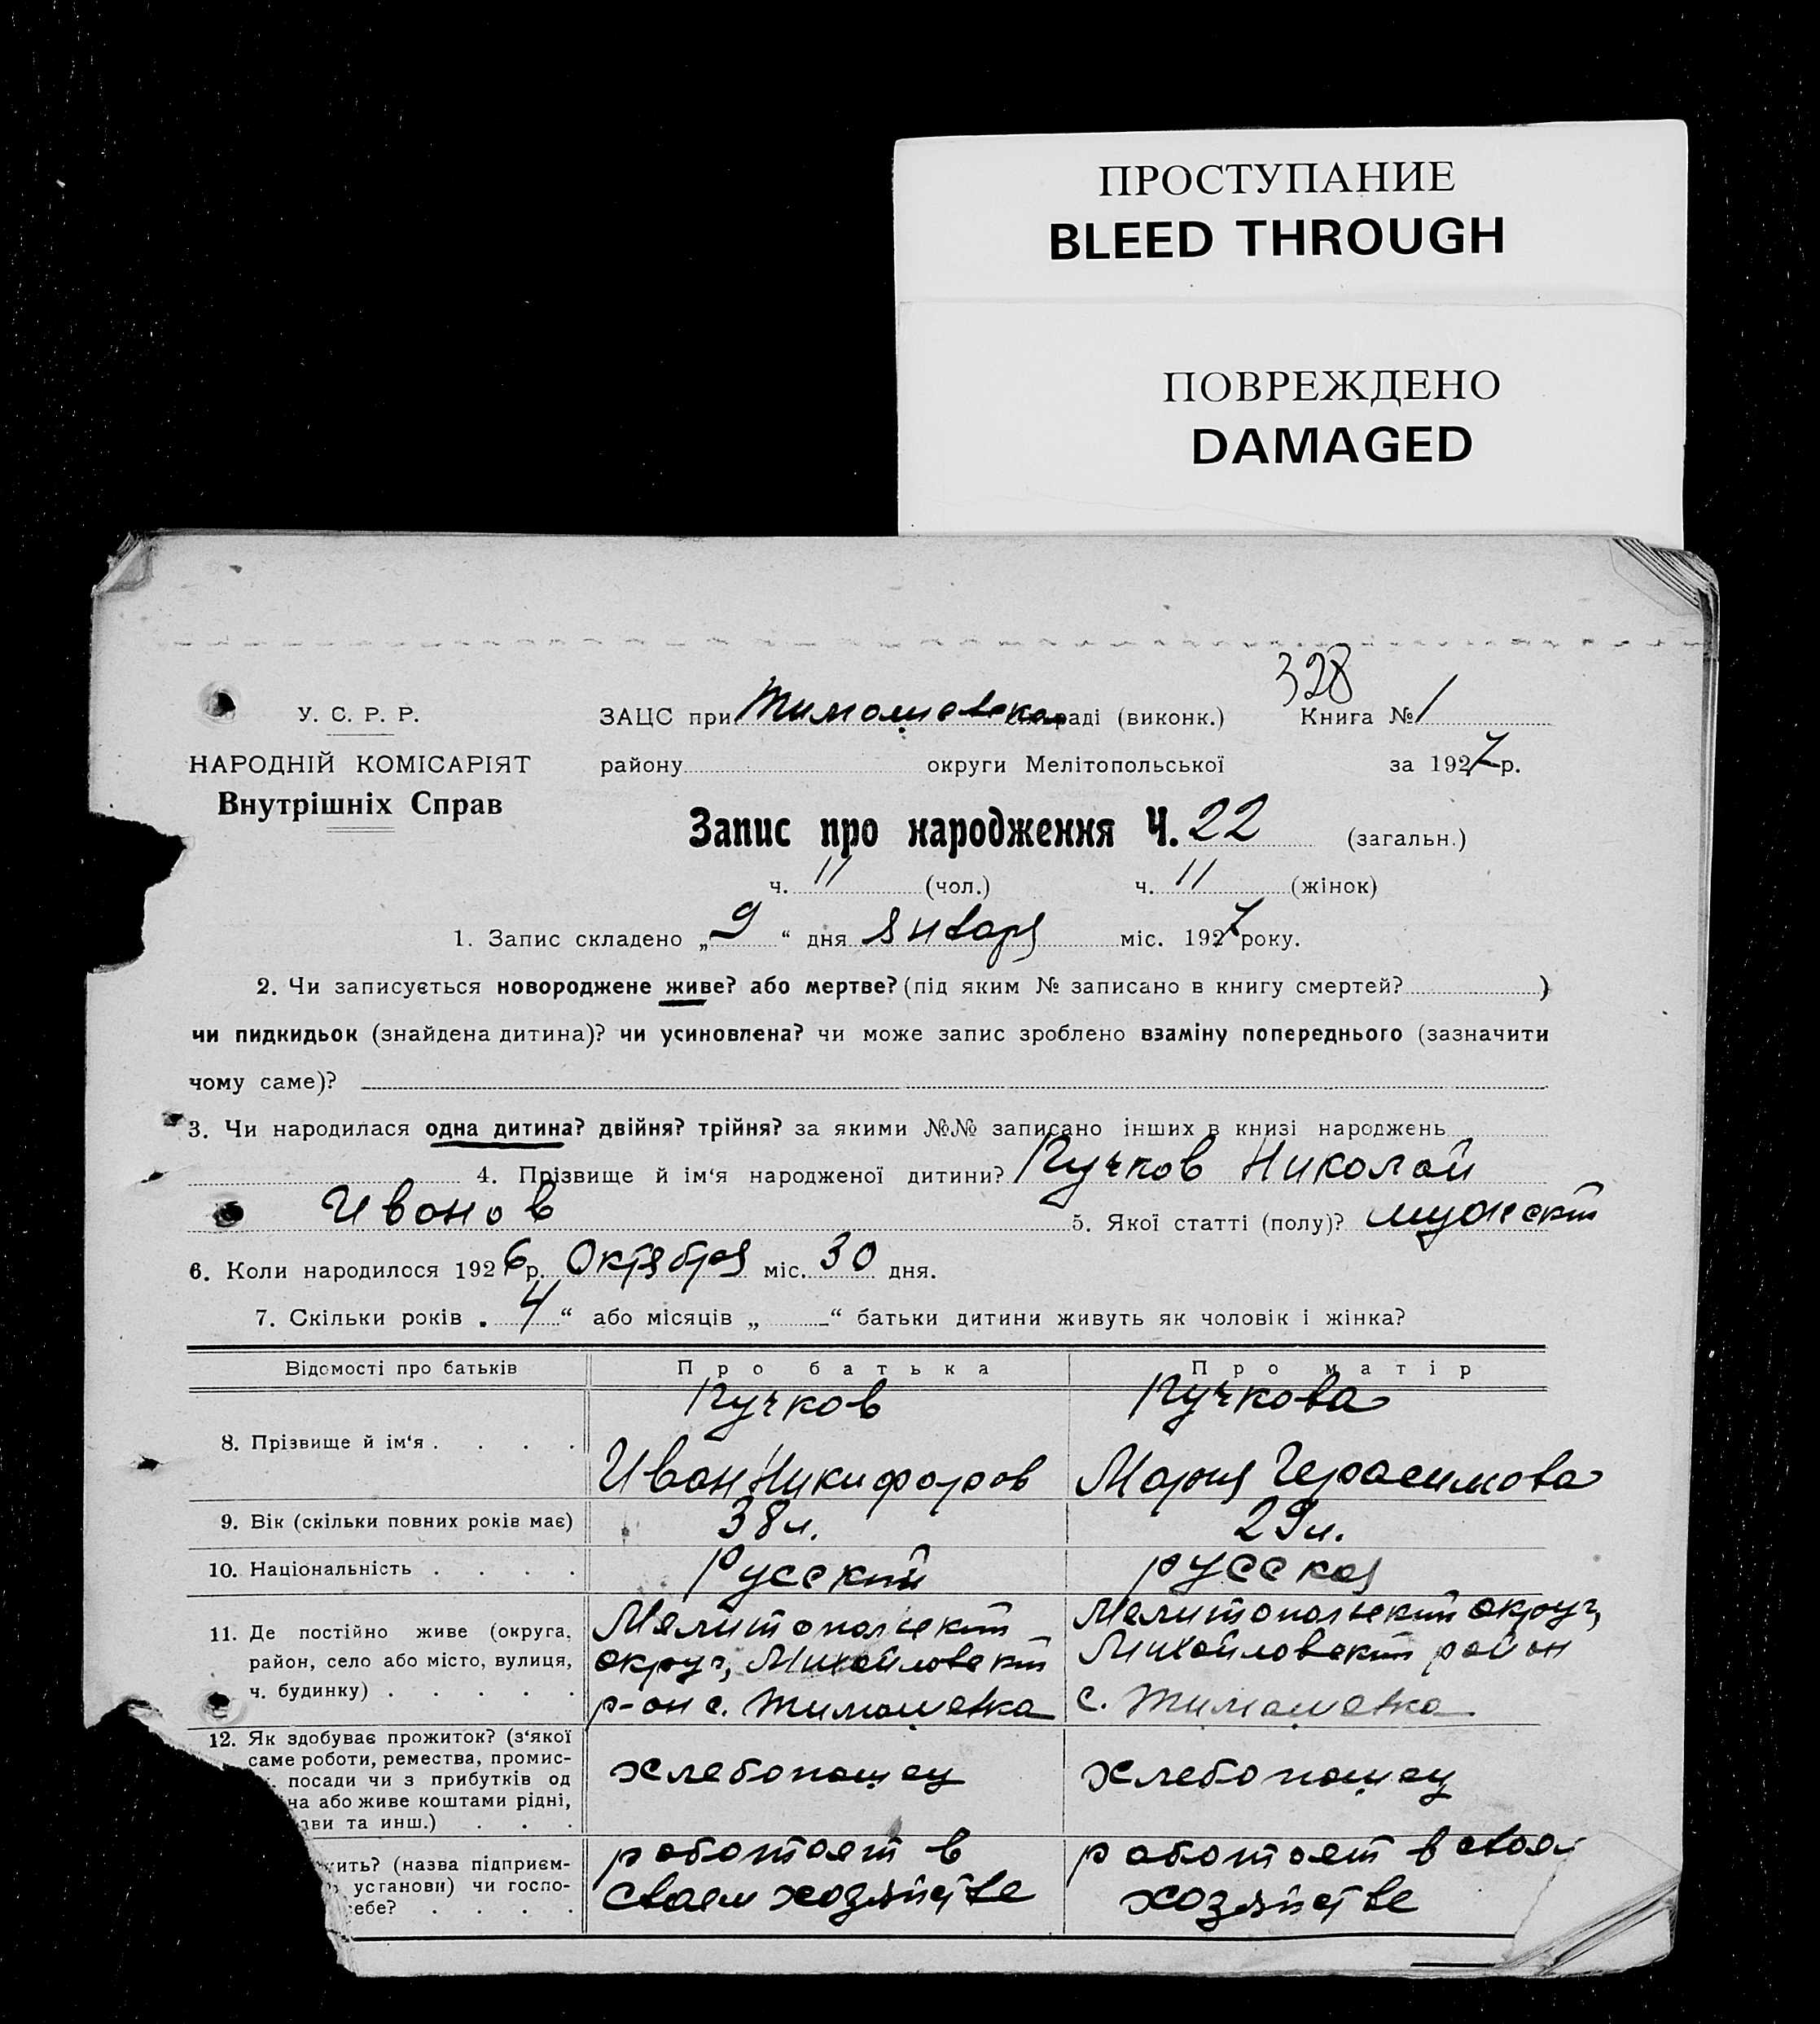 ПРОСТУПАНИЕ
BLEED THROUGH
ПОВРЕЖДЕНО
DAMAGED
328
У. С. Р. Р.
ЗАЦС при Тимошевской раді (виконк.) Книга № 1
НАРОДНІЙ КОМІСАРІЯТ
району округи Мелітопольської за 1927 р.
Внутрішніх Справ
Запис про народження Ч. 22 (загальн.)
ч. 11 (чол.) ч. 11 (жінок)
1. Запис складено „ 9 “ дня Января міс. 1927 року.
2. Чи записується новороджене живе? або мертве? (під яким № записано в книгу смертей? )
чи пидкидьок (знайдена дитина)? чи усиновлена? чи може запис зроблено взаміну попереднього (зазначити
чому саме)?
3. Чи народилася одна дитина? двійня? трійня? за якими №№ записано інших в книзі народжень
4. Прізвище й ім‘я народженої дитини? Пучков Николай
Иванов 5. Якої статті (полу)? мужски
6. Коли народилося 1926 р. Октября міс. 30 дня.
7. Скільки років „ 4 “ або місяців „ “ батьки дитини живуть як чоловік і жінка?
Відомості про батьків Про батька Про матір
Пучков Пучкова
8. Прізвище й ім‘я . . . .
Иван Никифоров Мария Герасимова
9. Вік (скільки повних років має) 38 л. 29 л.
10. Національність . . . . Русский русская
11. Де постійно живе (округа, Мелитопольский Мелитопольский округ,
район, село або місто, вулиця, округ, Михайловский Михайловский район
ч. будинку) . . . . . р-он с. Тимошевка с. Тимошевка
12. Як здобуває прожиток? (з‘якої
саме роботи, ремества, промис-
посади чи з прибутків од хлебопашец хлебопашец
на або живе коштами рідні,
ви та инш.) . . .
работает в работает в свое
жить? (назва підприєм-
установи) чи госпо- своем хозяйстве хозяйстве
себе? . . . .